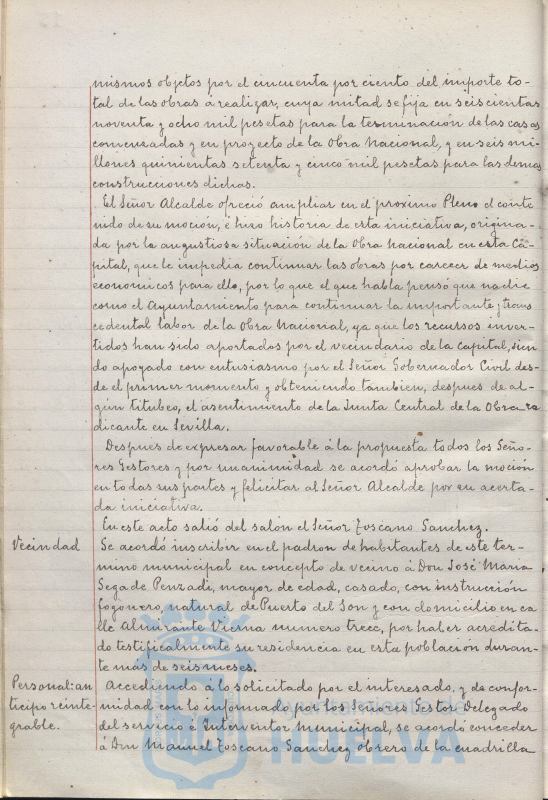 mismos objetos por el cincuenta por ciento del importe to-
tal de las obras á realizar, cuya mitad se fija en seiscientas
noventa y ocho mil pesetas para la terminación de las casas
comenzadas y en proyecto de la Obra Nacional, y en seis mi-
llones quinientas setenta y cinco mil pesetas para las demas
construcciones dichas.
El Señor Alcalde ofreció ampliar en el proximo Pleno el conte
nido de su moción, é hizo historia de esta iniciativa, origina-
da por la angustiosa situación de la Obra Nacional en esta Ca-
pital, que le impedia continuar las obras por carecer de medios
economicos para ello, por lo que el que habla pensó que nadie
como el Ayuntamiento para continuar la importante y trans
cedental labor de la Obra Nacional, ya que los recursos inver-
tidos han sido aportados por el vecindario de la Capital, sien
do apoyado con entusiasmo por el Señor Gobernador Civil des-
de el primer momento y obteniendo tambien, despues de al-
gún titubeo, el asentimiento de la Junta Central de la Obra ra
dicante en Sevilla.
Despues de expresar favorable á la propuesta todos los Seño-
res Gestores y por unanimidad se acordó aprobar la moción
en todas sus partes y felicitar al Señor Alcalde por su acerta-
da iniciativa.
En este acto salió del salón el Señor Toscano Sanchez.
Vecindad
Se acordó inscribir en el padron de habitantes de este ter-
mino municipal en concepto de vecino á Don José Maria
Sega de Penzadi, mayor de edad, casado, con instrucción
fogonero, natural de Puerto del Son y con domicilio en ca
lle Almirante Vierna numero trece, por haber acredita-
do testificalmente su residencia en esta población duran-
te más de seis meses.
Personal: an
ticipo reinte-
grable.
Accediendo á lo solicitado por el interesado, y de confor-
midad con lo informado por los Señores Gestor Delegado
del servicio é Interventor Municipal, se acordó conceder
á Don Manuel Toscano Sanchez obrero de la cuadrilla
HUELVA